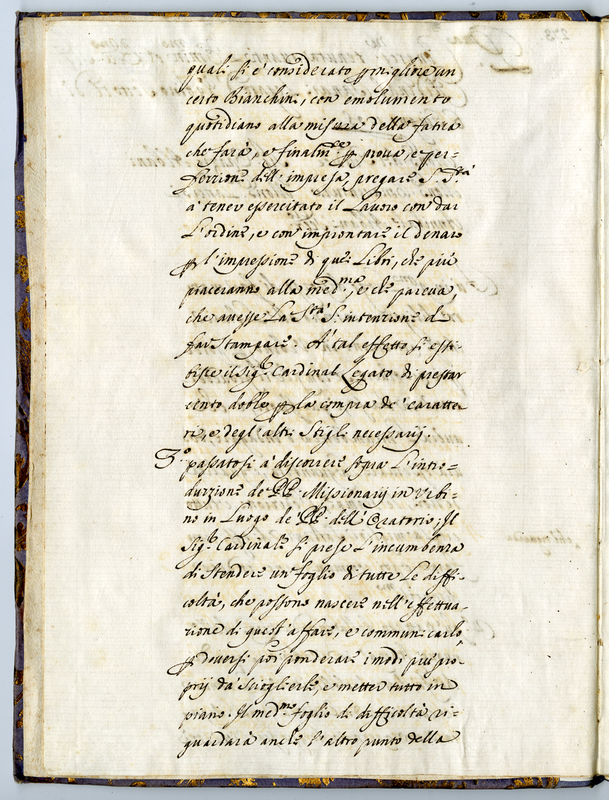 quali si è considerato p migliore un
certo Bianchini, con emolumento
quotidiano alla misura della fatica
che farà, e finalm.te p prova, e per-
fezzione dell'impresa, pregare S. S.tà
à tener essercitato il Lavoro con dar
L'ordine, e con improntare il denaro
p l'impressione di que' Libri, che più
piaceranno alla med.ma, e che pareva,
che avesse La S.tà S. intenzione di
far Stampare. A' tal effetto si esi-
bisce il Sig.r Cardinal Legato di prestar
cento doble p la compra de' caratte-
ri, e degl'altri Stigli necessarij.
3.o passatosi à discorrere sopra L'intro-
duzzione de' PP. Missionarij in Urbi-
no in Luogo de' PP. dell'Oratorio; Il
Sig.r Cardinale si prese L'incumbenza
di Stendere un foglio di tutte Le diffi-
coltà, che possono nascere nell'effettua-
zione di quest'affare, e communicarlo,
p doversi poi ponderare i modi più pro-
prij da Scioglierle, e metter tutto in
piano. Il med.mo foglio di difficoltà ri-
guardarà anche l'altro punto della